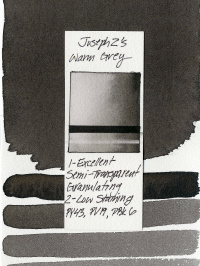 JosephZ's
Warm Grey
1-Excellent
Semi-Transparent
Granulating
2-Low Staining
PY43, PV19, PBk 6